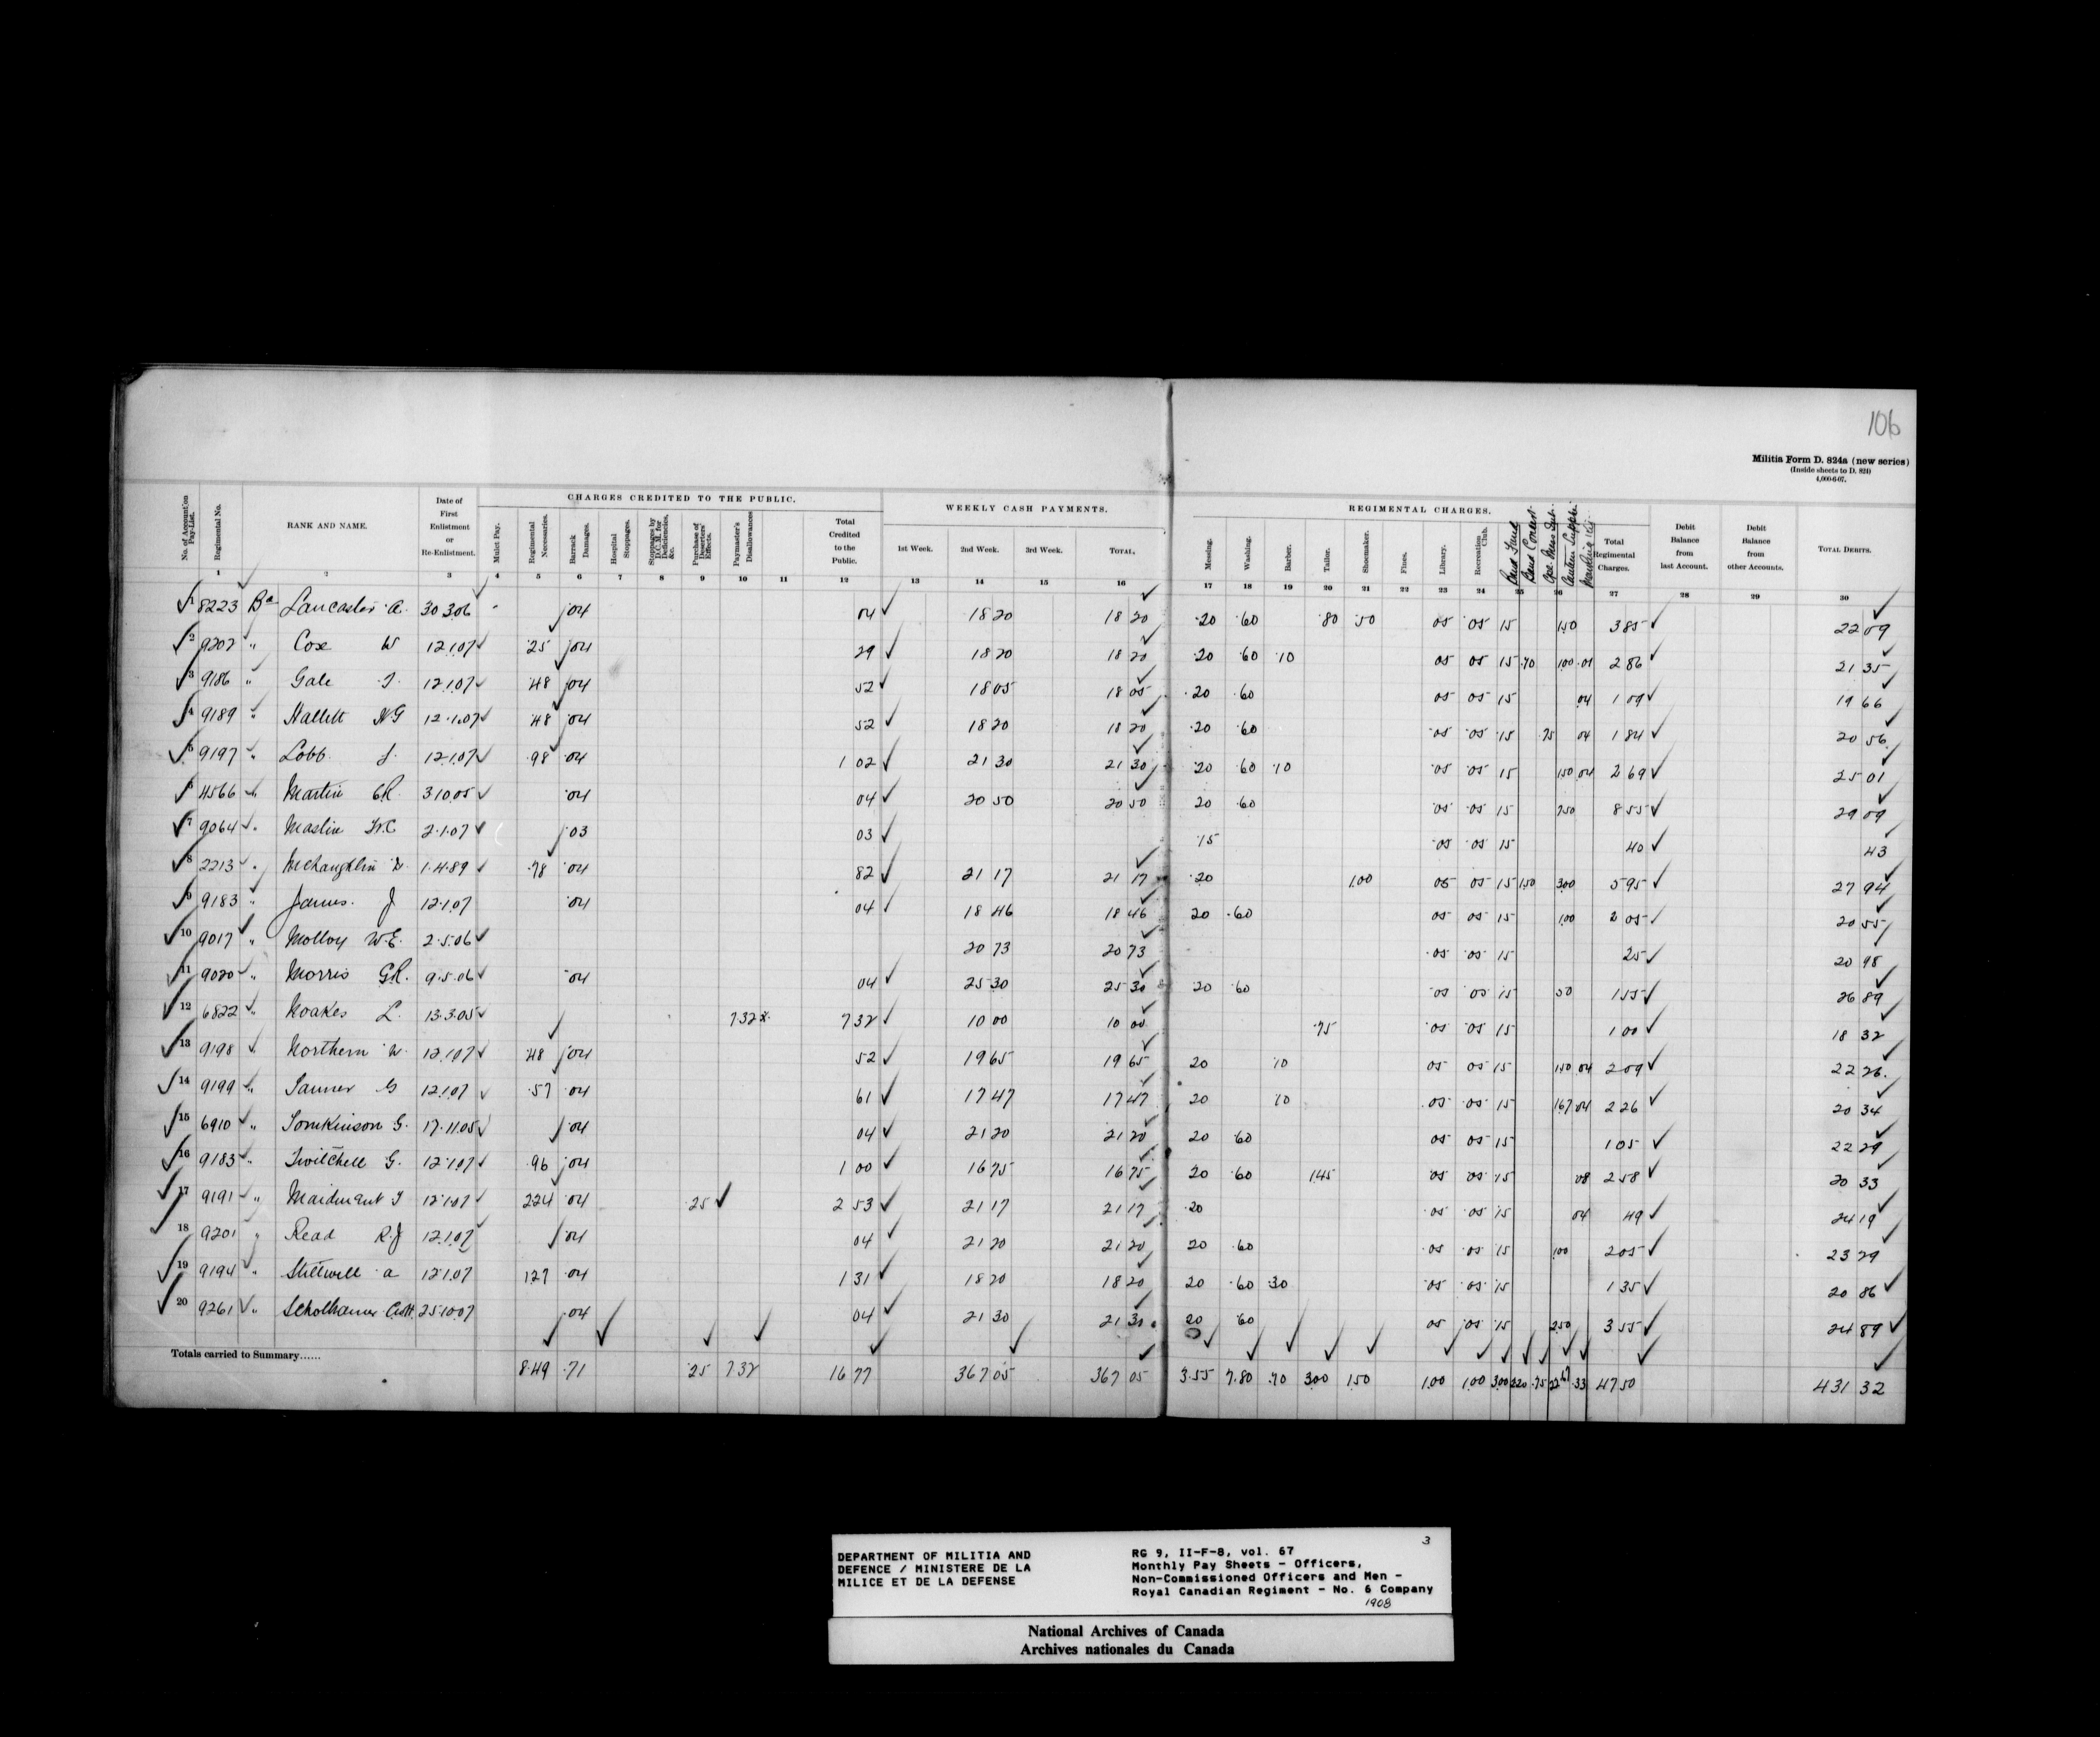 106
Militia Form D. 824a (new series)
(Inside sheets to D. 824)
4,000-6-07.
CHARGES CREDITED TO THE PUBLIC. WEEKLY CASH PAYMENTS. REGIMENTAL CHARGES.
No. of Account on Pay-List. Regimental No. RANK AND NAME. Date of First Enlistment or Re-Enlistment. Mulct Pay. Regimental Necessaries. Barrack Damages. Hospital Stoppages. Stoppages by D.C.M. for Deficiencies, &c. Purchase of Deserters' Effects. Paymaster's Disallowances Total Credited to the Public. 1st Week. 2nd Week. 3rd Week. TOTAL. Messing. Washing. Barber. Tailor. Shoemaker. Fines. Library. Recreation Club. Band Fund Band Concert Total Regimental Charges. Debit Balance from last Account. Debit Balance from other Accounts. TOTAL DEBITS.
1 2 3 4 5 6 7 8 9 10 11 12 13 14 15 16 17 18 19 20 21 22 23 24 25 26 27 28 29 30
1 8223 Lancaster A. 30 3 06 04 04 18 20 18 20 20 60 80 50 05 05 15 1 50 3 85 22 09
2 9202 " Cox W 12 1 07 25 04 29 18 20 18 20 20 60 10 05 05 15 70 1 00 01 2 86 21 35
3 9186 " Gale J. 12 1 07 48 04 52 18 05 18 05 20 60 05 05 15 04 1 09 19 66
4 9189 " Hallett HG 12 1 07 48 04 52 18 20 18 20 20 60 05 05 15 75 04 1 84 20 56
5 9197 " Lobb J. 12 1 07 98 04 1 02 21 30 21 30 20 60 10 05 05 15 1 50 04 2 69 25 01
6 4566 " Martin CR. 3 10 05 04 04 20 50 20 50 20 60 05 05 15 7 50 8 55 29 09
7 9064 " Maslin 2 1 07 03 03 15 05 05 15 40 43
8 2213 " McLaughlin 1 4 89 78 04 82 21 17 21 17 20 1 00 05 05 15 1 50 3 00 5 95 27 94
9 9183 " James J 12 1 07 04 04 18 46 18 46 20 60 05 05 15 1 00 2 05 20 55
10 9017 " Molloy W.E. 2 5 06 20 73 20 73 05 05 15 25 20 98
11 9020 " Morris GR. 9 5 06 04 04 25 30 25 30 20 60 05 05 15 50 1 55 26 89
12 6822 " Noakes L. 13 3 05 7 32 7 32 10 00 10 00 75 05 05 15 1 00 18 32
13 9198 " Northern W. 12 1 07 48 04 52 19 65 19 65 20 10 05 05 15 1 50 04 2 09 22 26
14 9199 " Tanner G 12 1 07 57 04 61 17 47 17 47 20 10 05 05 15 1 67 04 2 26 20 34
15 6910 " Tomkinson G. 17 11 05 04 04 21 20 21 20 20 60 05 05 15 1 05 22 29
16 9183 " Twitchell G. 12 1 07 96 04 1 00 16 75 16 75 20 60 1 45 05 05 15 08 2 58 20 33
17 9191 " Maidment J 12 1 07 2 24 04 25 2 53 21 17 21 17 20 05 05 15 04 49 24 19
18 9201 " Read R.J 12 1 07 04 04 21 20 21 20 20 60 05 05 15 1 00 2 05 23 29
19 9194 " Stillwell A 12 1 07 1 27 04 1 31 18 20 18 20 20 60 30 05 05 15 1 35 20 86
20 9261 " 25 10 07 04 04 21 30 21 30 20 60 05 05 15 2 50 3 55 24 89
Totals carried to Summary...... 8 49 71 25 7 32 16 77 367 05 367 05 3.55 7.80 70 3 00 1 50 1 00 1 00 3 00 2 20 75 22 67 33 47 50 431 32
DEPARTMENT OF MILITIA AND
DEFENCE / MINISTERE DE LA
MILICE ET DE LA DEFENSE
3
RG 9, II-F-8, vol. 67
Monthly Pay Sheets - Officers,
Non-Commissioned Officers and Men -
Royal Canadian Regiment - No. 6 Company
1908
National Archives of Canada
Archives nationales du Canada